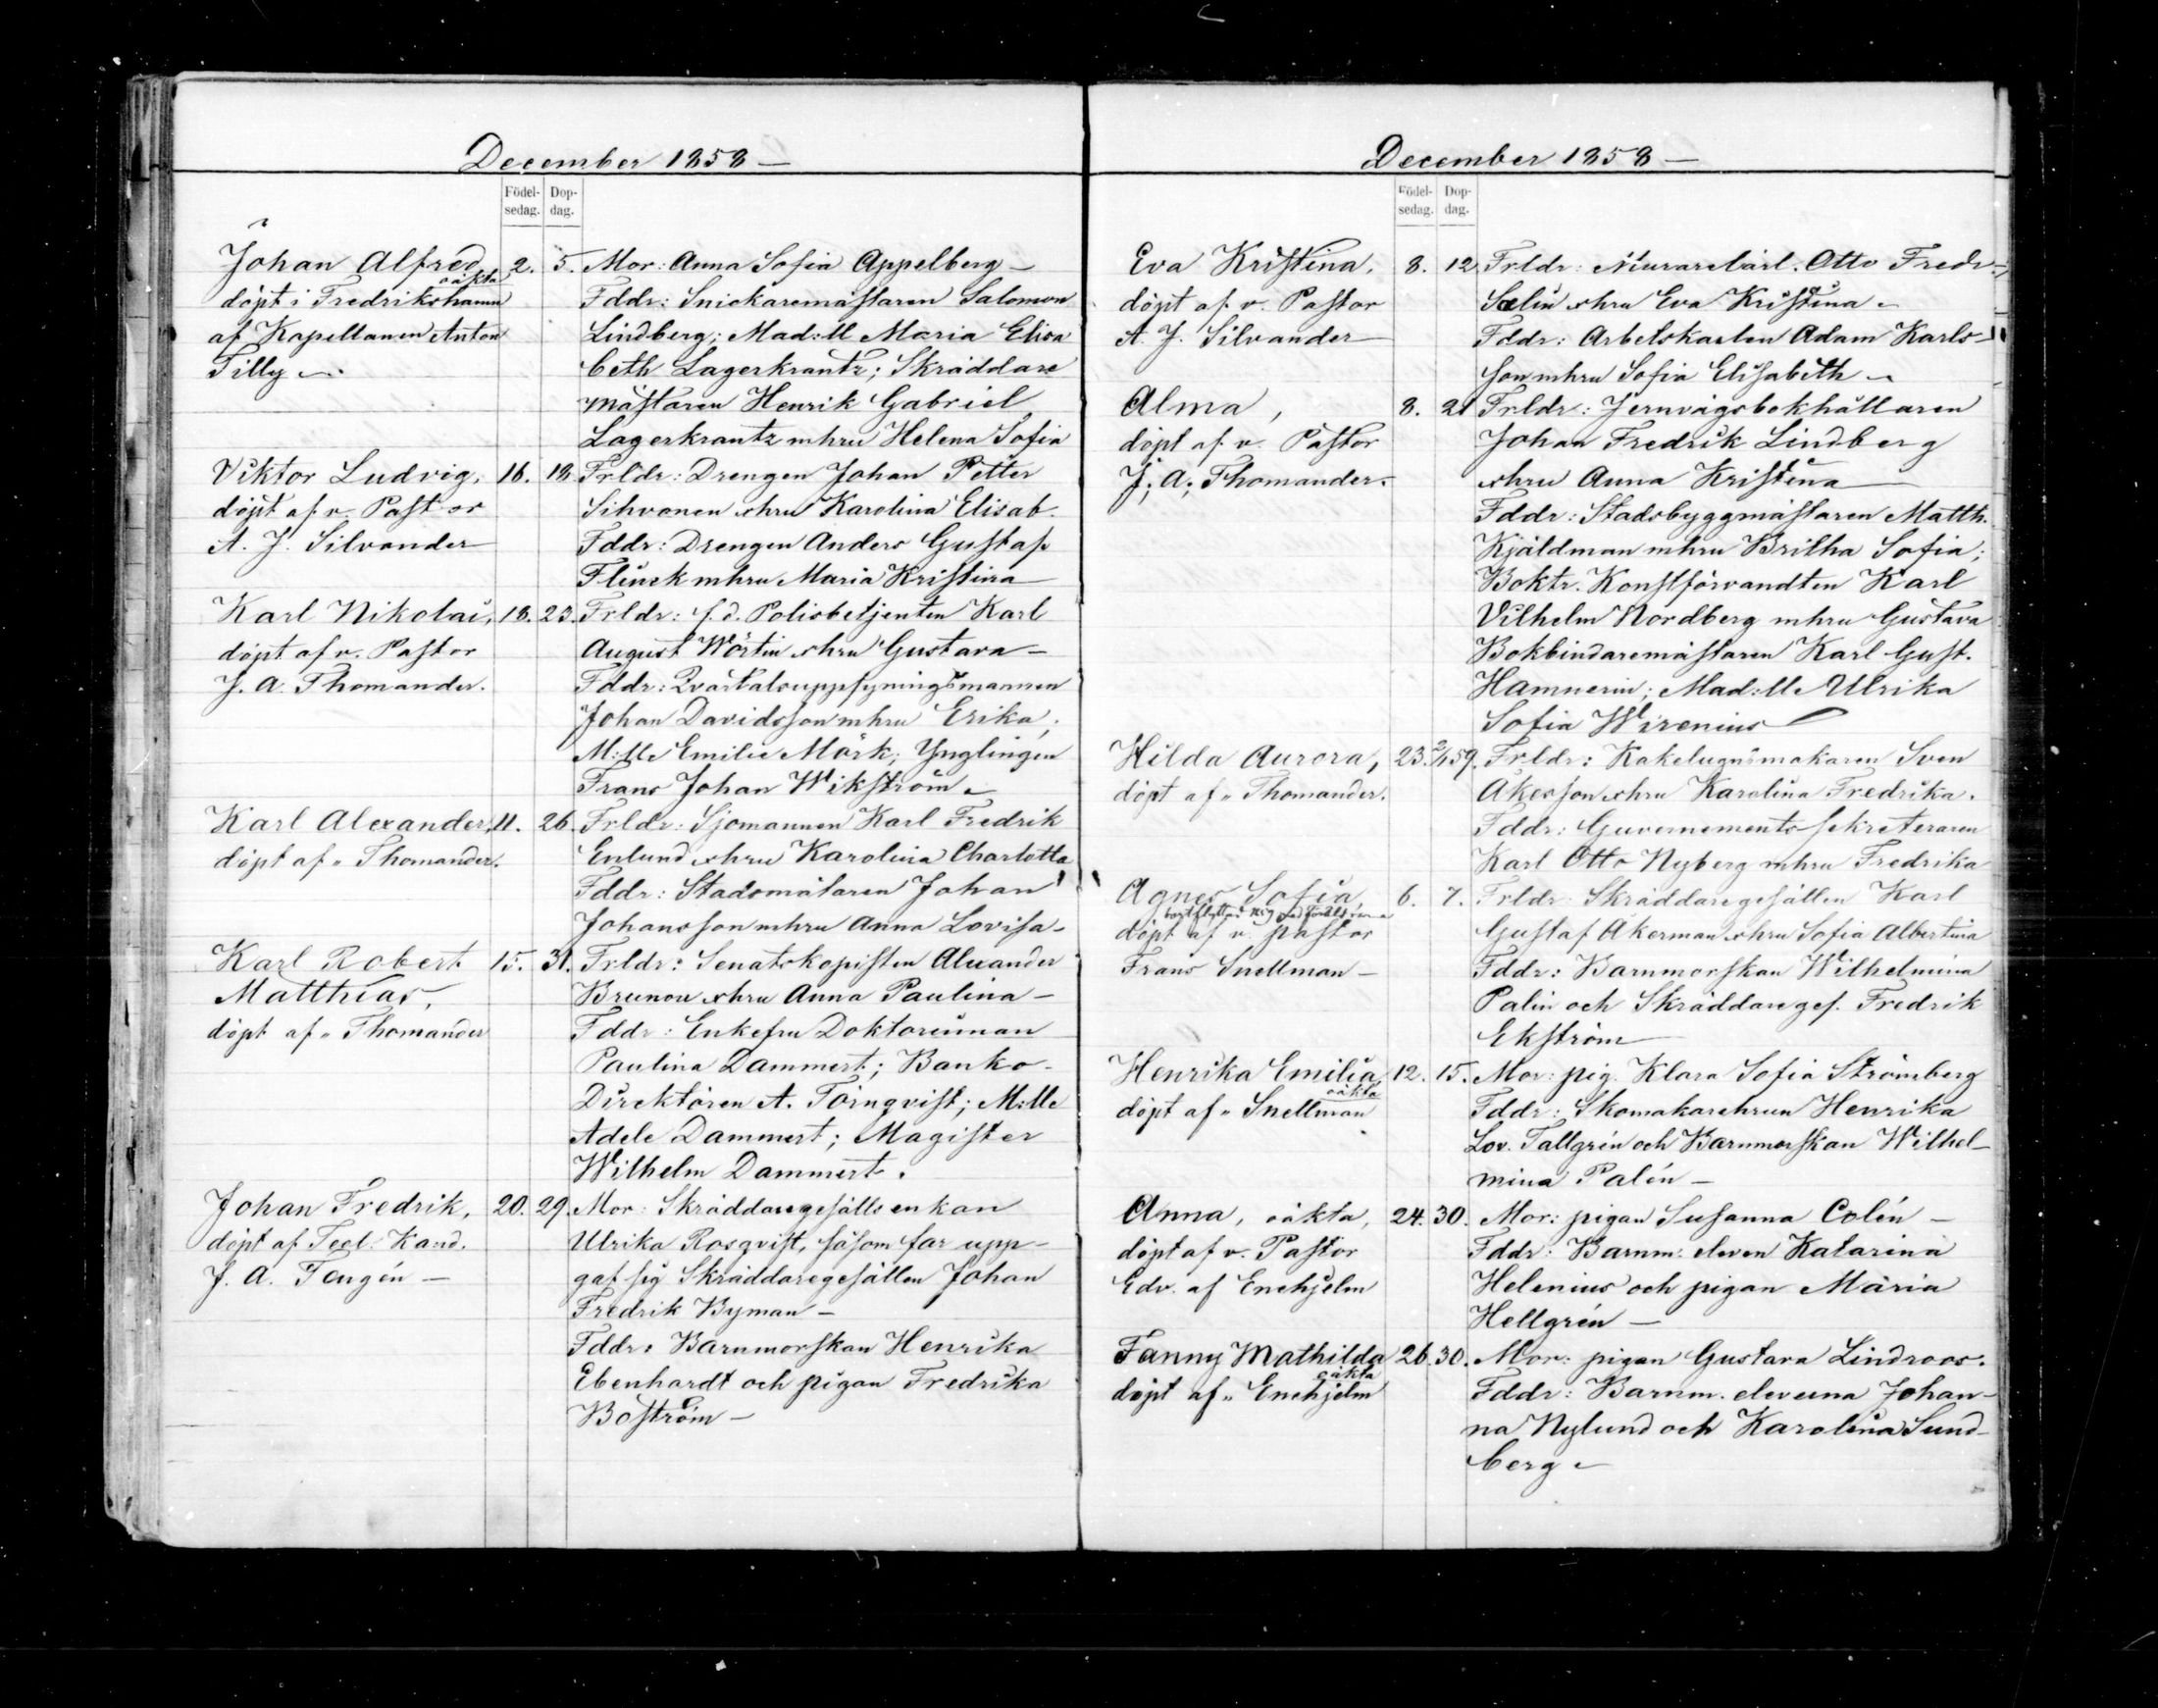 December 1858 —
Födel-sedag. Dop-dag.
Johan Alfred, oäkta 2. 5. Mor: Anna Sofia Appelberg —
döpt i Fredrikshamn Fddr: Snickaremästaren Salomon
af Kapellanen Anton Lindberg; Mad:ll Maria Elisa
Tilly — beth Lagerkrantz; Skräddare
mästaren Henrik Gabriel
Lagerkrantz mhru Helena Sofia
Viktor Ludvig, 16. 18. Frldr: Drengen Johan Petter
döpt af v. Pastor Sihvonen ohru Karolina Elisab.
A. J. Silvander Fddr: Drengen Anders Gustaf
Flinck mhru Maria Kristina
Karl Nikolai, 18. 23. Frldr: f.d. Polisbetjenten Karl
döpt af v. Pastor August Wörtin ohru Gustava —
J. A. Thomander. Fddr: Qvartalsuppsyningsmannen
Johan Davidsson mhru Erika;
M:lle Emilie Mörk; Ynglingen
Frans Johan Wikström —
Karl Alexander, 11. 26. Frldr: Sjömannen Karl Fredrik
döpt af „ Thomander. Enlund ohru Karolina Charlotta
Fddr: Stadsmätaren Johan
Johansson mhru Anna Lovisa —
Karl Robert 15. 31. Frldr: Senatskopisten Alexander
Matthias, Brunou ohru Anna Paulina —
döpt af „ Thomander Fddr: Enkefru Doktorinnan
Paulina Dammert; Banko-
Direktören A. Törnqvist; M:lle
Adele Dammert; Magister
Wilhelm Dammert.
Johan Fredrik, 20. 29. Mor: Skräddaregesälls enkan
döpt af Teol. Kand. Ulrika Rosqvist, såsom far upp-
J. A. Tengén — gaf sig Skräddaregesällen Johan
Fredrik Byman —
Fddr: Barnmorskan Henrika
Ebenhardt och pigan Fredrika
Boström —
December 1858 —
Födel-sedag. Dop-dag.
Eva Kristina, 8. 12. Frldr: Murarelärl. Otto Fredr.
döpt af v. Pastor Selin ohru Eva Kristina —
A. J. Silvander Fddr: Arbetskarlen Adam Karls-
son mhru Sofia Elisabeth —
Alma, 8. 21 Frldr: Jernvågsbokhållaren
döpt af v. Pastor Johan Fredrik Lindberg
J. A. Thomander. ohru Anna Kristina
Fddr: Stadsbyggmästaren Matth.
Kjäldman mhru Britha Sofia;
Boktr. Konstförvandten Karl
Vilhelm Nordberg mhru Gustava
Bokbindaremästaren Karl Gust.
Hamnerin; Mad:lle Ulrika
Sofia Wirenius
Hilda Aurora, 23. 2/1 59. Frldr: Kakelugnsmakaren Sven
döpt af „ Thomander. Åkesson ohru Karolina Fredrika.
Fddr: Guvernements-sekreteraren
Karl Otto Nyberg mhru Fredrika
Agnes Sofia, 6. 7. Frldr: Skräddaregesällen Karl
bortflyttad med föräldrarna
döpt af v. pastor Gustaf Åkerman ohru Sofia Albertina
Frans Snellman — Fddr: Barnmorskan Wilhelmina
Palin och Skräddareges. Fredrik
Ekström
Henrika Emilia, oäkta 12. 15. Mor: pig. Klara Sofia Strömberg
döpt af „ Snellman Fddr: Skomakarehrun Henrika
Lov. Tallgrén och Barnmorskan Wilhel-
mina Palén —
Anna, oäkta, 24. 30. Mor: pigan Susanna Colén —
döpt af v. Pastor Fddr: Barnm. eleven Katarina
Edv. af Enehjelm Helenius och pigan Maria
Hellgrén —
Fanny Mathilda oäkta 26. 30. Mor: pigan Gustava Lindroos.
döpt af „ Enehjelm Fddr: Barnm. eleverna Johan-
na Nylund och Karolina Sund-
berg —